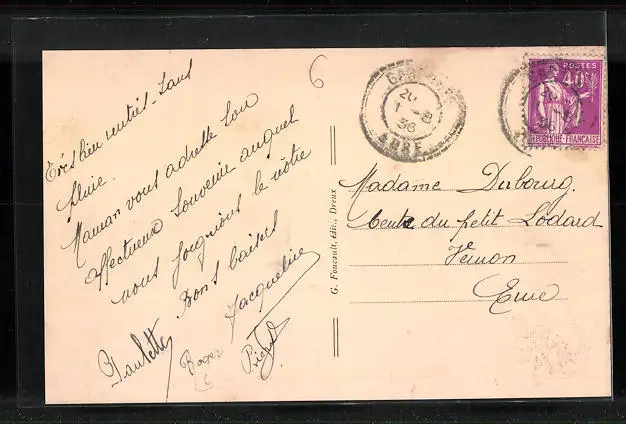 6
Très bien rentrés - sans
pluie.
Maman vous adresse son
affectueux souvenir auquel
nous joignons le nôtre
Bons baisers
Paulette
Roger
Jacqueline
G. Foucault, édit., Dreux
20
1 - 8
36
EURE
POSTES
40c
RÉPUBLIQUE FRANÇAISE
Madame Dubourg
du petit Lodard
Vernon
Eure